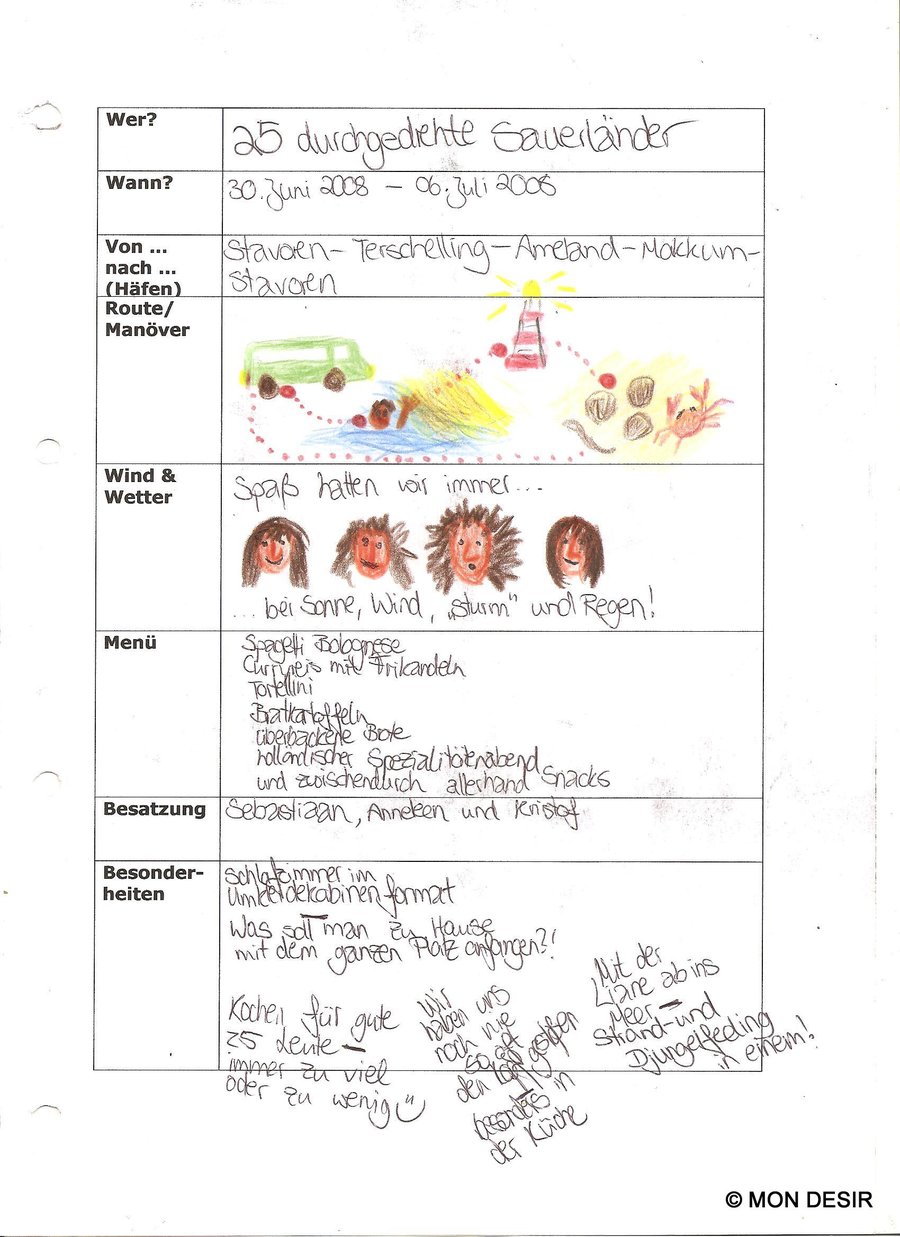 Wer?
25 durchgedrehte Sauerländer
Wann?
30. Juni 2008 – 06. Juli 2008
Von ...
nach ...
(Häfen)
Stavoren – Terschelling – Ameland – Makkum –
Stavoren
Route/
Manöver
Wind &
Wetter
Spaß hatten wir immer...
... bei Sonne, Wind, „Sturm“ und Regen!
Menü
Spagetti Bolognese
Curryreis mit Frikandeln
Tortellini
Bratkartoffeln
überbackene Brote
holländischer Spezialitätenabend
und zwischendurch allerhand Snacks
Besatzung
Sebastiaan, Anneken und Kristof
Besonder-
heiten
Schlafzimmer im
Umkleidekabinenformat
Was soll man zu Hause
mit dem ganzen Platz anfangen?!
Kochen für gute
25 Leute –
immer zu viel
oder zu wenig
Wir
haben uns
noch nie
so oft
den Kopf gestoßen
besonders in
der Küche
Mit der
Liane ab ins
Meer –
Strand- und
Djungelfeeling
in einem!
© MON DESIR